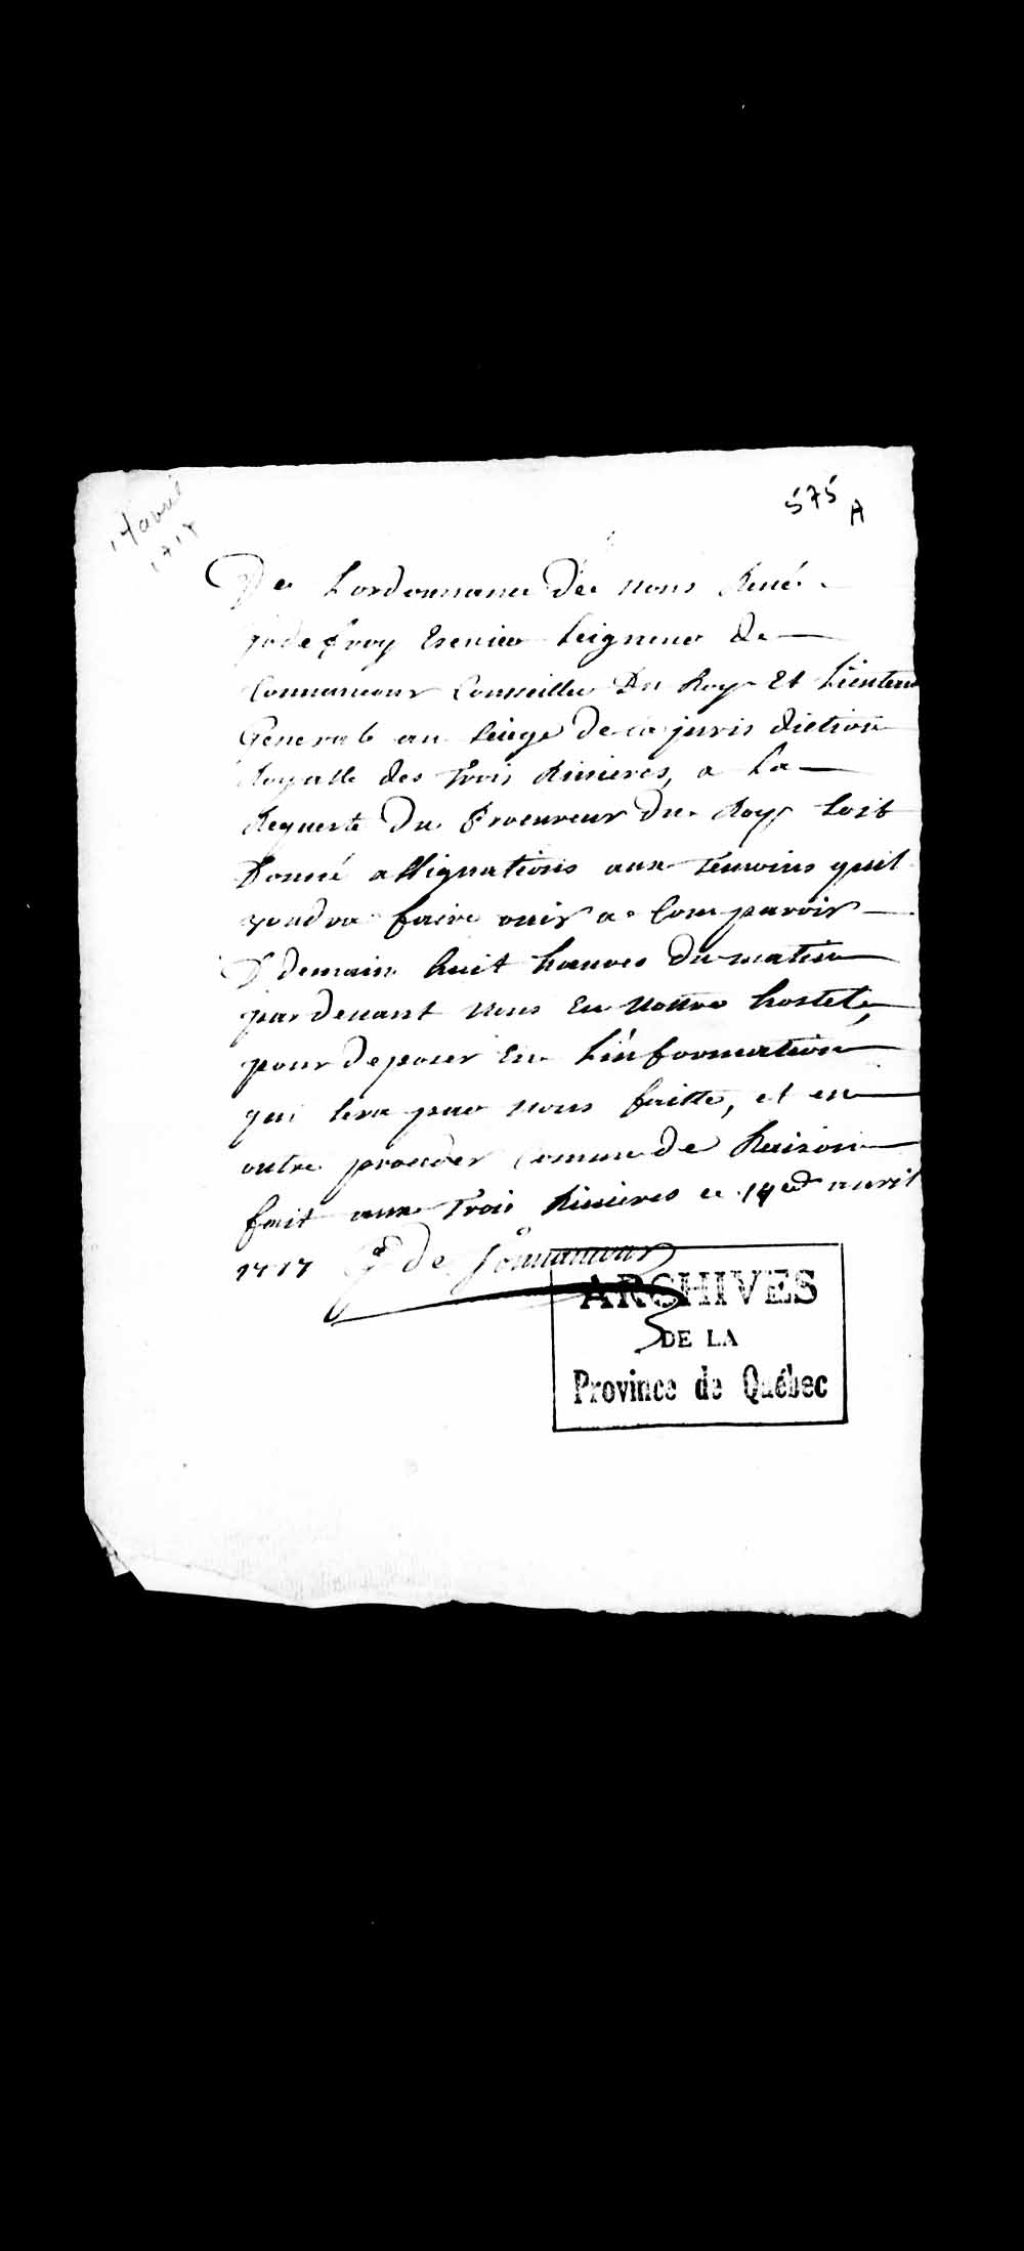 575 A
14 avril
1717
De Lordonnance de nous René
Godefroy Escuier Seigneur de
Tonnancour Conseiller Du Roy Et Lieuten
General au siege de la juris diction
Royalle des Trois Rivieres, a La
Requeste Du Procureur Du Roy soit
Donné assignations aux Temoins quil
voudra faire ouir a Comparoir
D demain huit heures du matin
par devant nous En nostre hostel,
pour deposer En Linformation
qui sera par nous faitte, et en
outre proceder comme de Raison
fait aux Trois Rivieres ce 14e avril
1717 G de Tonnancour
ARCHIVES
DE LA
Province de Québec